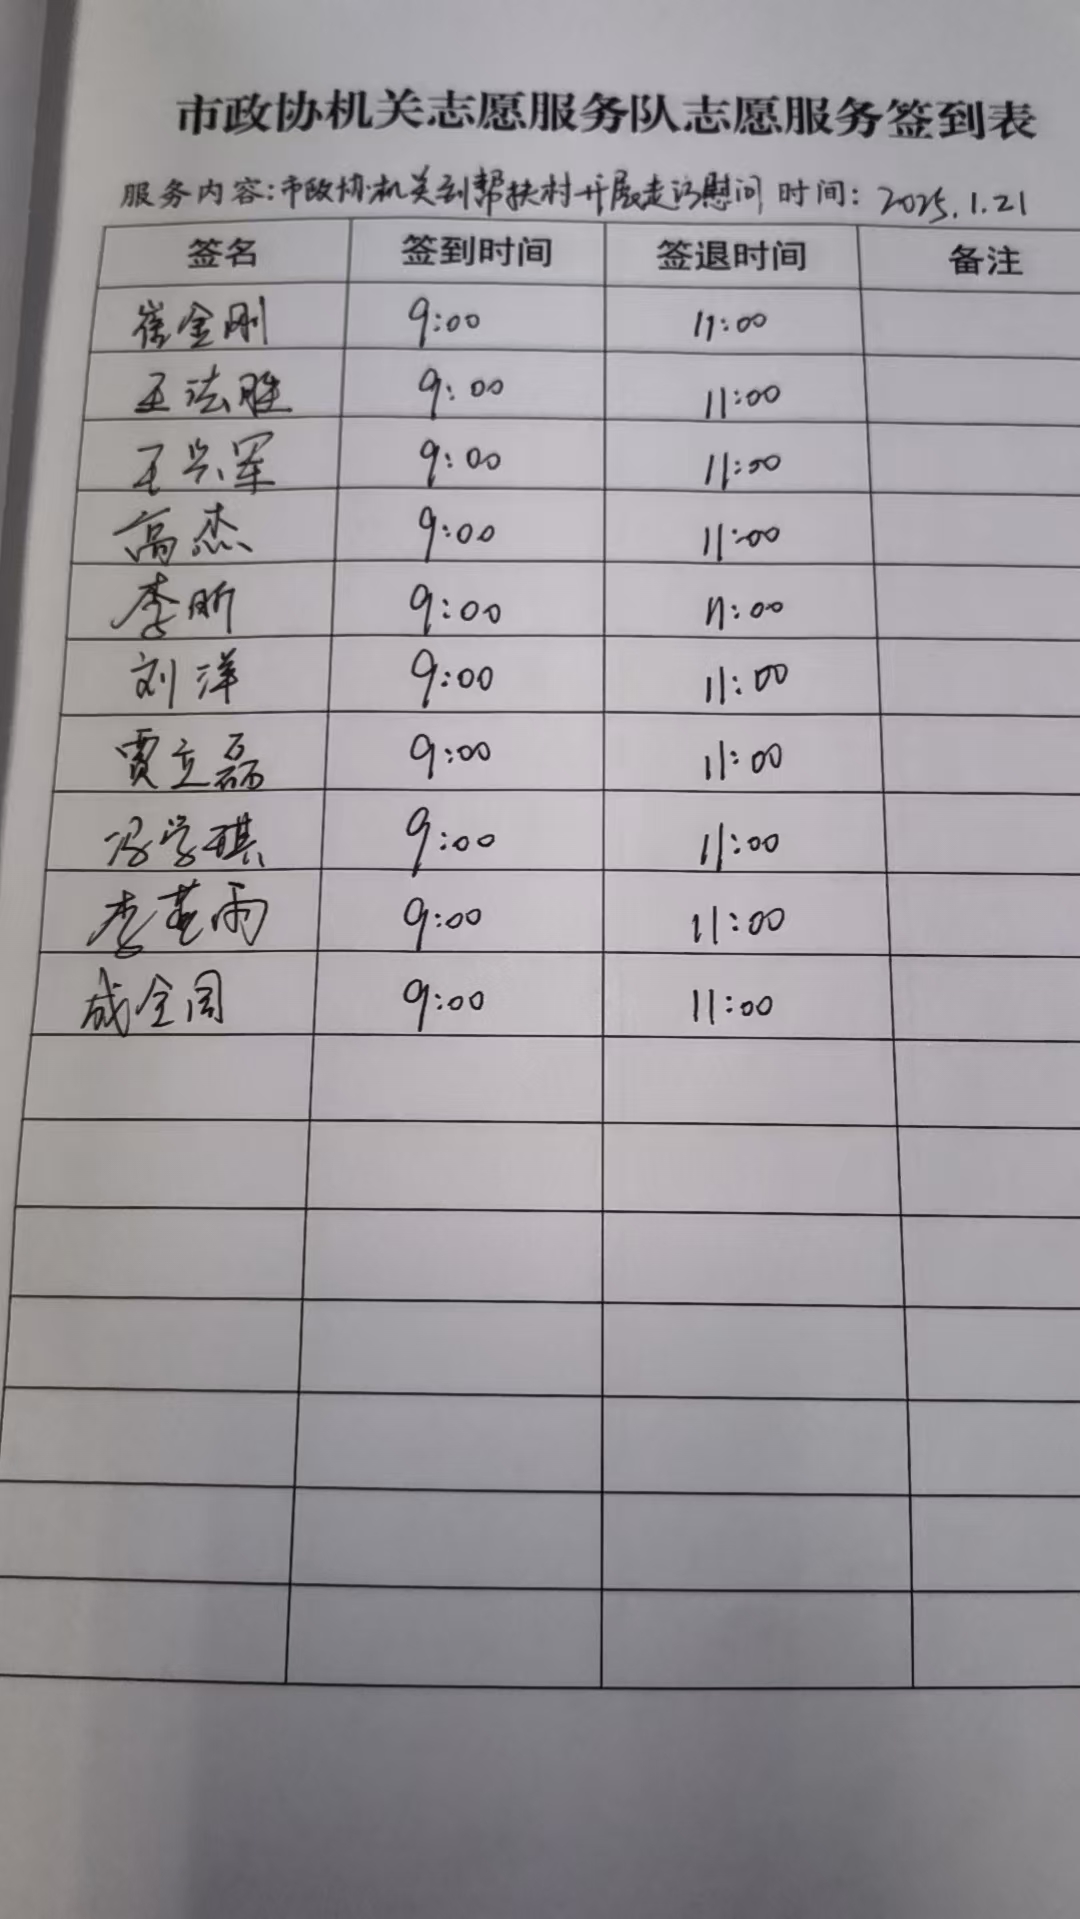 市政协机关志愿服务队志愿服务签到表
服务内容:市政协机关到帮扶村开展走访慰问 时间: 2025.1.21
签名 签到时间 签退时间 备注
崔金刚 9:00 11:00
王法胜 9:00 11:00
王兴军 9:00 11:00
高杰 9:00 11:00
李昕 9:00 11:00
刘洋 9:00 11:00
贾立磊 9:00 11:00
冯学琪 9:00 11:00
李英雨 9:00 11:00
成全周 9:00 11:00